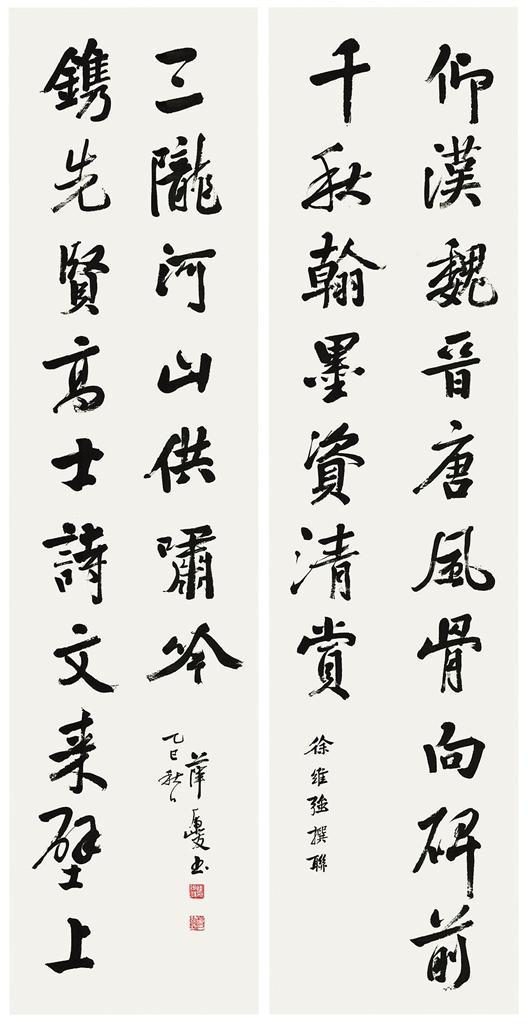 仰漢魏晉唐風骨向碑前
千秋翰墨資清賞
徐維强撰聯
鐫先賢高士詩文来壁上
三隴河山供嘯吟
乙巳秋日
薛书